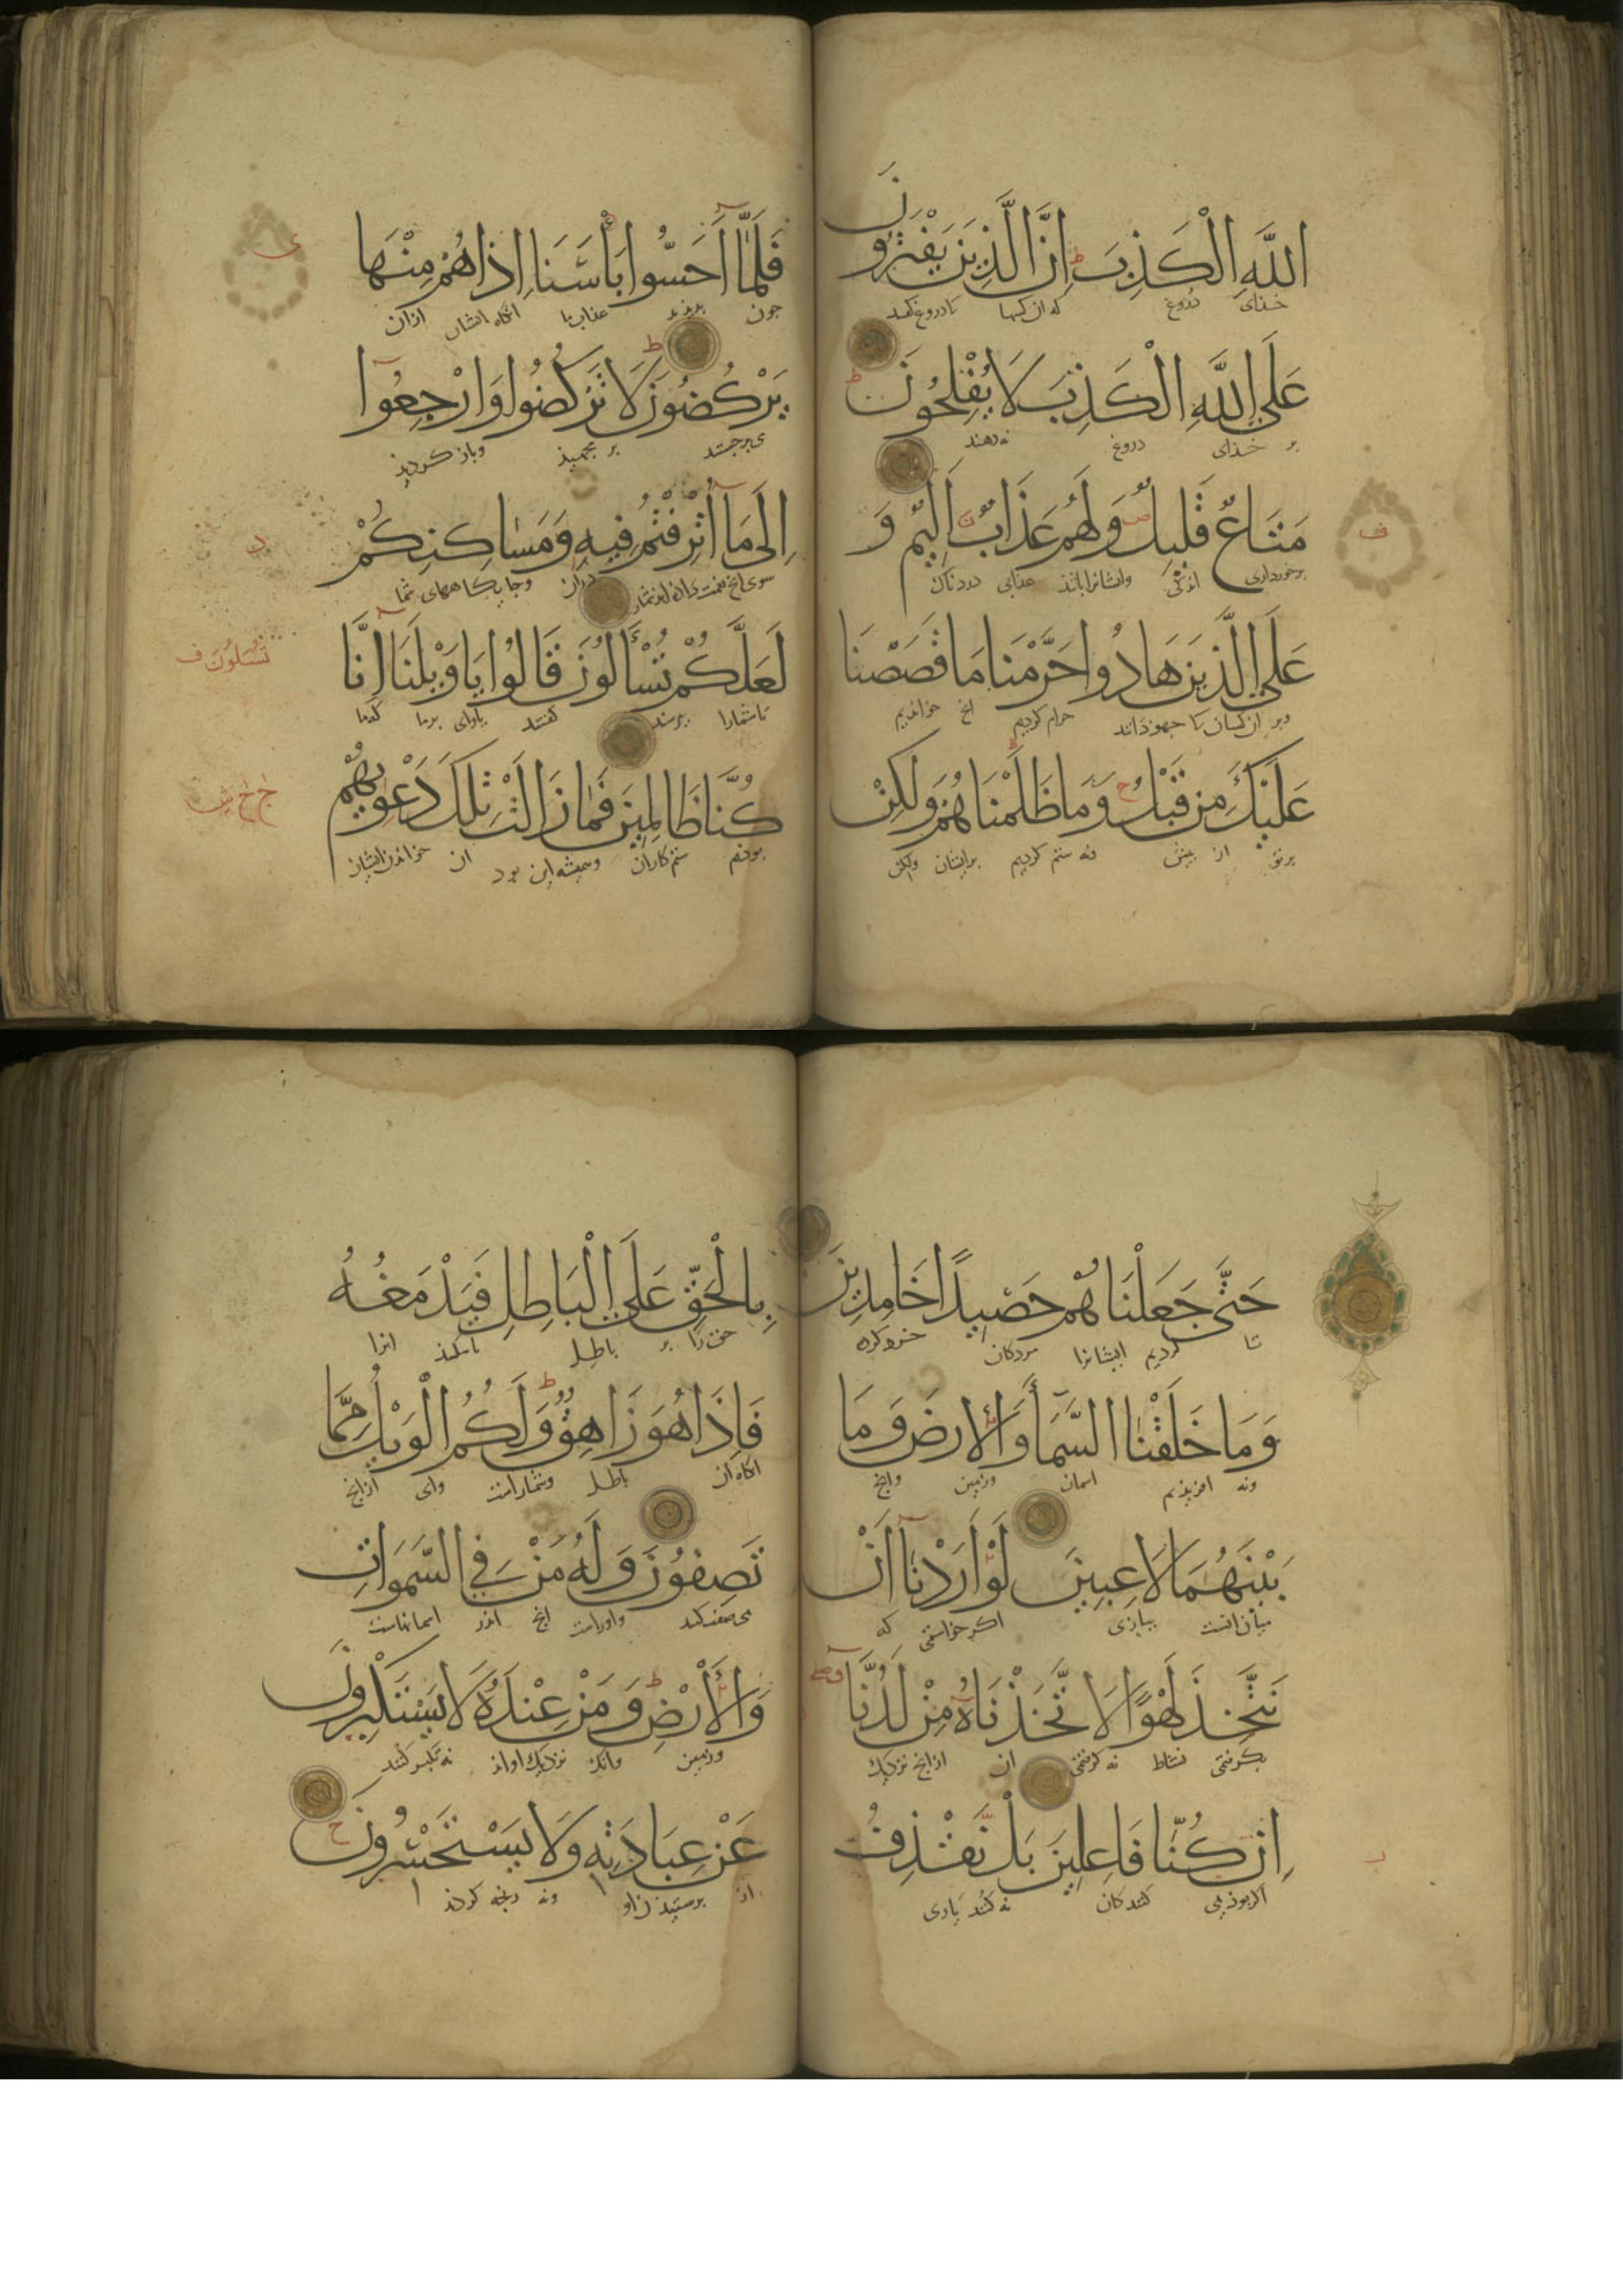 اللَّهِ الْكَذِبَ إِنَّ الَّذِينَ يَفْتَرُونَ
خدای دروغ که آن کسها
عَلَى اللَّهِ الْكَذِبَ لَا يُفْلِحُونَ
بر خدای دروغ نه رهند
مَتَاعٌ قَلِيلٌ وَلَهُمْ عَذَابٌ أَلِيمٌ وَ
برخورداری اندکی وایشانرا باشد عذابی دردناک
ف
عَلَى الَّذِينَ هَادُوا حَرَّمْنَا مَا قَصَصْنَا
وبر آن کسان کا جهودانند حرام کردیم انچ خواندیم
عَلَيْكَ مِنْ قَبْلُ وَمَا ظَلَمْنَاهُمْ وَلَكِنْ
برتو از پیش ونه ستم کردیم برایشان ولکن
فَلَمَّا أَحَسُّوا بَأْسَنَا إِذَا هُمْ مِنْهَا
چون بدیدند عذاب ما انگاه ایشان ازان
ی
يَرْكُضُونَ لَا تَرْكُضُوا وَارْجِعُوا
می برجستند بر مجهید وباز کردید
إِلَى مَا أُتْرِفْتُمْ فِيهِ وَمَسَاكِنِكُمْ
سوی انچ دران وجایکاههای شما
لَعَلَّكُمْ تُسْأَلُونَ قَالُوا يَا وَيْلَنَا إِنَّا
تا شمارا پرسند کفتند یا وای برما که ما
تسلون ف
كُنَّا ظَالِمِينَ فَمَا زَالَتْ تِلْكَ دَعْوَيهُمْ
بودیم ستم کاران وهمیشه این بود آن خواندن ایشان
ج خ ش
حَتَّى جَعَلْنَاهُمْ حَصِيدًا خَامِدِينَ
تا کردیم ایشانرا مردکان
وَمَا خَلَقْنَا السَّمَاءَ وَالْأَرْضَ وَمَا
ونه افریدیم اسمان وزمین وانچ
بَيْنَهُمَا لَاعِبِينَ لَوْ أَرَدْنَا أَنْ
میان انست ببازی اکر خواستمی که
نَتَّخِذَ لَهْوًا لَاتَّخَذْنَاهُ مِنْ لَدُنَّا
بکرفتمی نشاط نه کرفتمی آن ازانچ نزدیک
إِنْ كُنَّا فَاعِلِينَ بَلْ نَقْذِفُ
اکر بودیمی کنندکان
بِالْحَقِّ عَلَى الْبَاطِلِ فَيَدْمَغُهُ
حق را بر باطل انرا
فَإِذَا هُوَ زَاهِقٌ وَلَكُمُ الْوَيْلُ مِمَّا
انکاه آن باطل وشماراست وای ازانچ
تَصِفُونَ وَلَهُ مَنْ فِي السَّمَوَاتِ
می صفت کنید واوراست انچ اندر اسمانهاست
وَالْأَرْضِ وَمَنْ عِنْدَهُ لَا يَسْتَكْبِرُونَ
وزمین وانک نزدیک اواند نه تکبر کنند
عَنْ عِبَادَتِهِ وَلَا يَسْتَحْسِرُونَ
از پرستیدن او ونه رنجه کردند